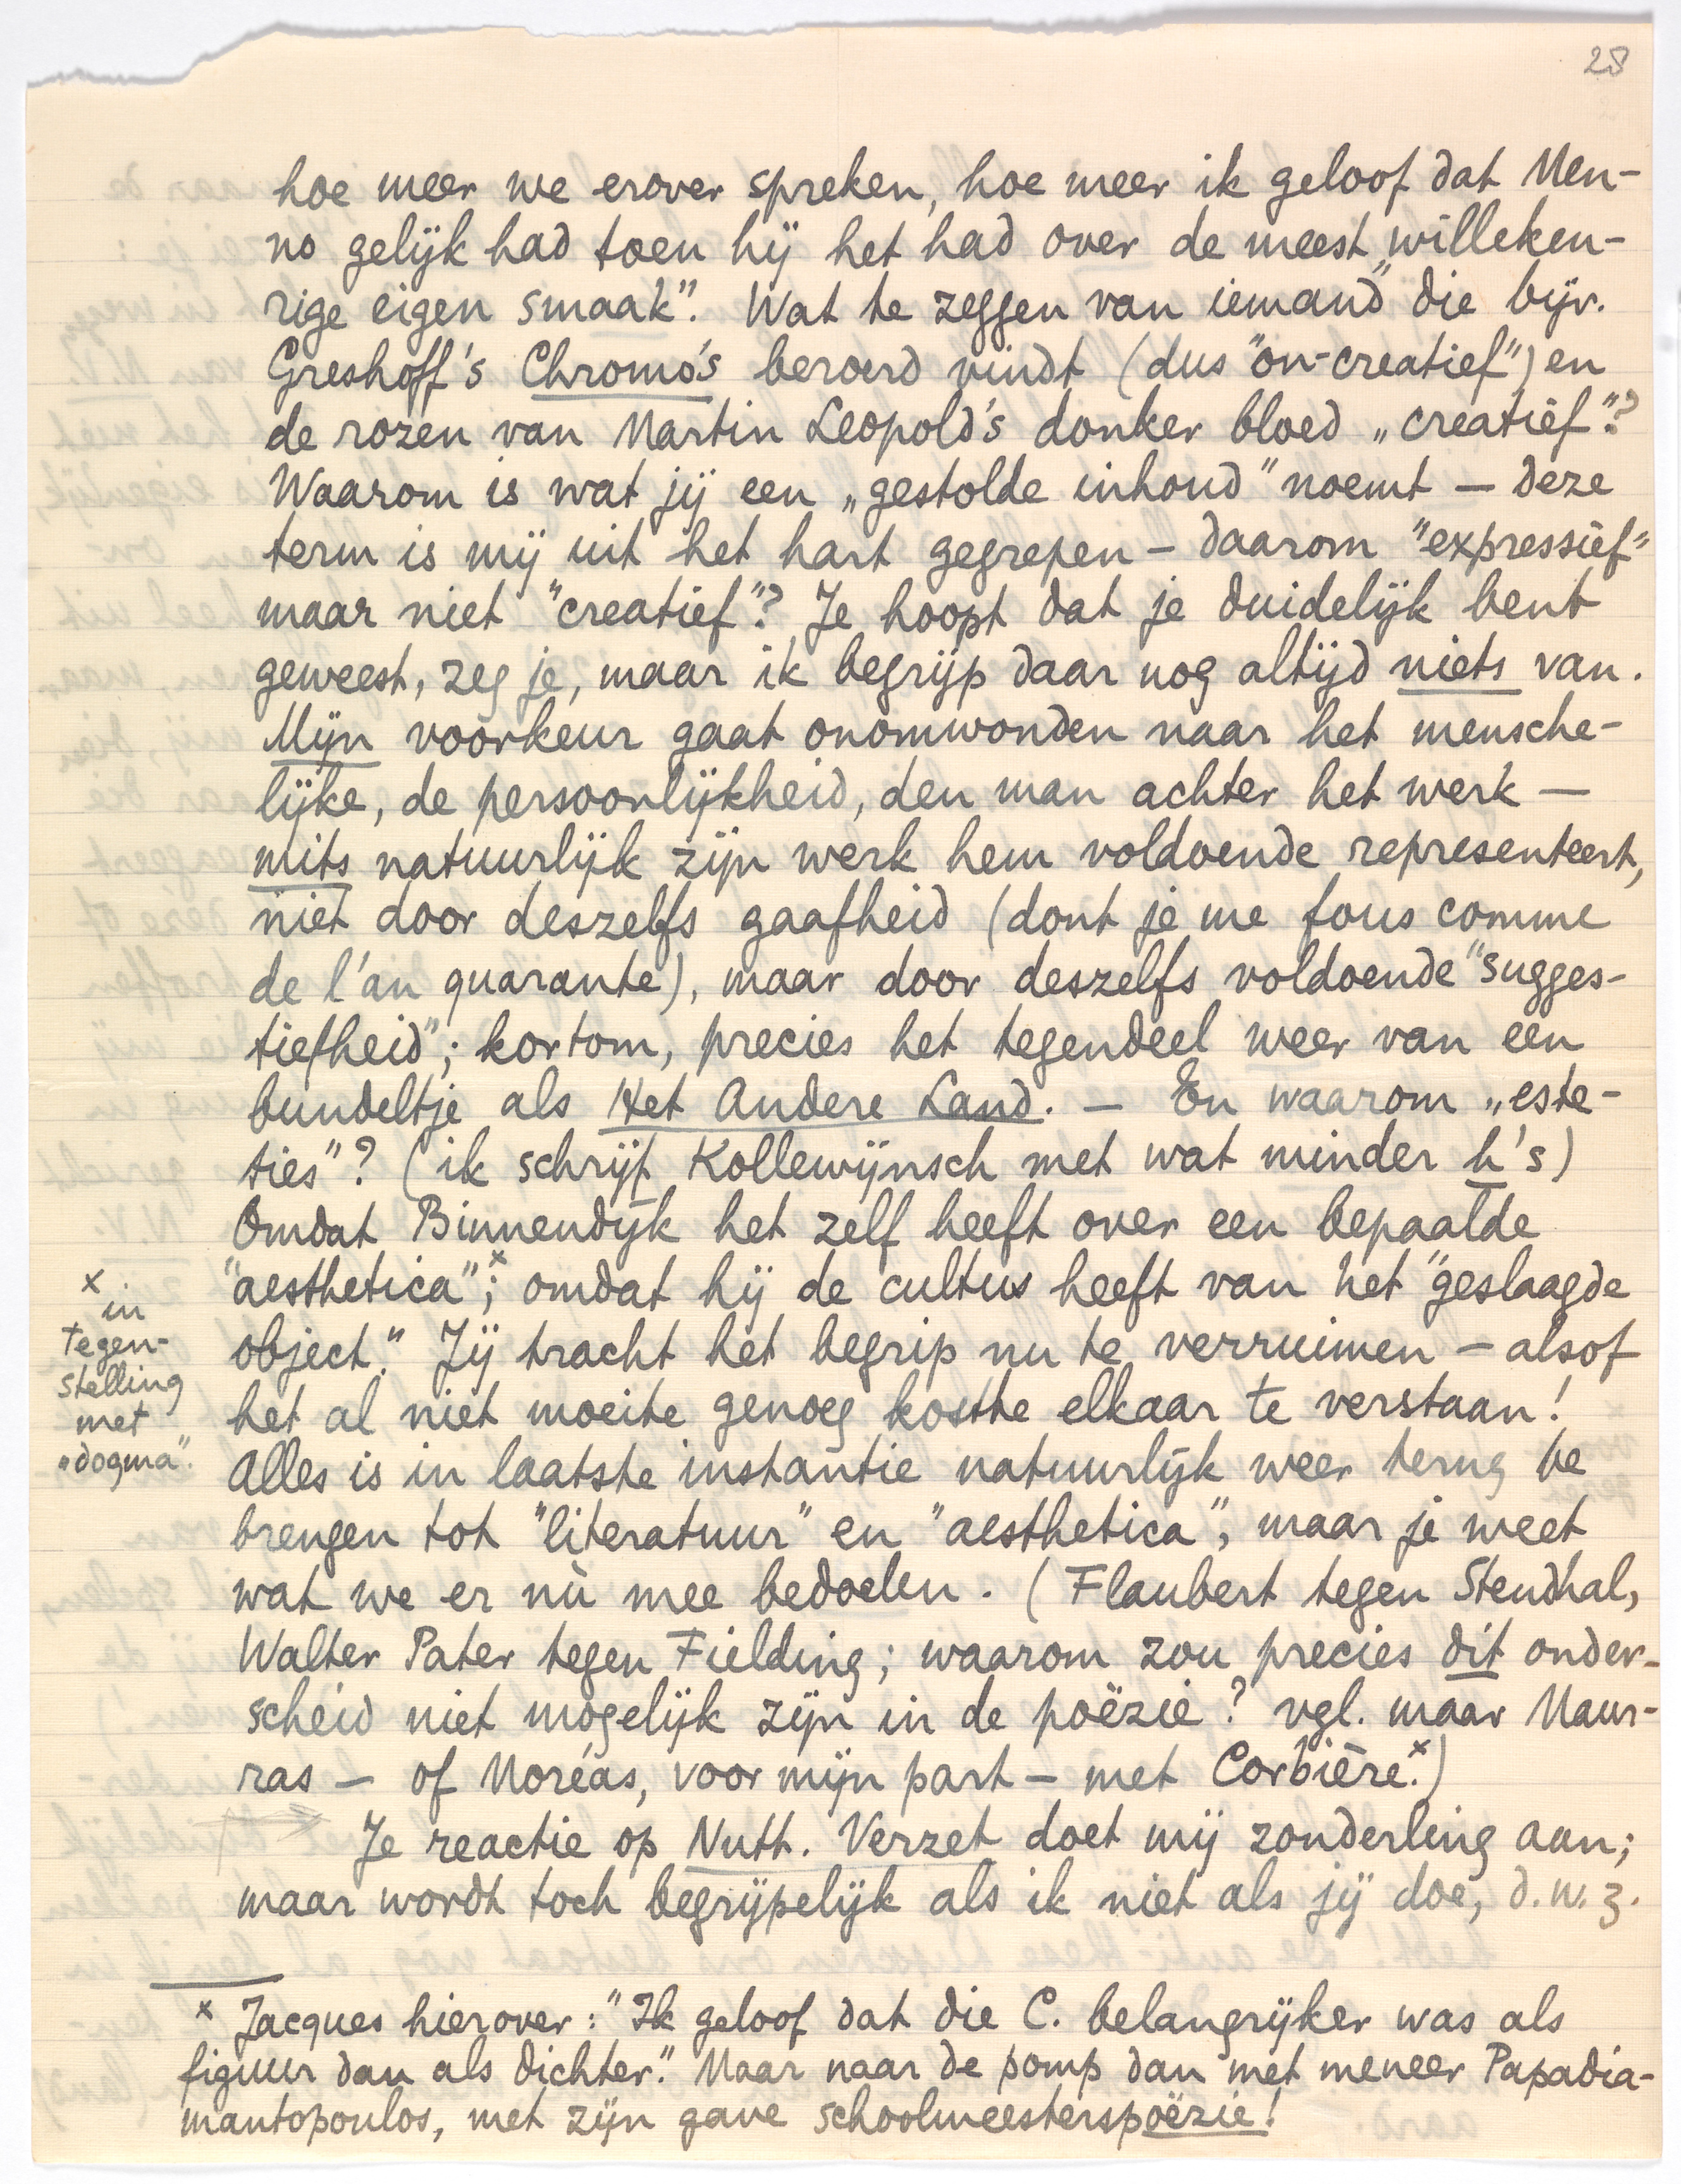 28
hoe meer we erover spreken, hoe meer ik geloof dat Men-
no gelijk had toen hij het had over de meest „willekeu-
rige eigen smaak”. Wat te zeggen van iemand die bijv.
Greshoff's Chromo's beroerd vindt (dus "on-creatief") en
de rozen van Martin Leopold's donker bloed „creatief”?
Waarom is wat jij een „gestolde inhoud” noemt — deze
term is mij uit het hart gegrepen — daarom "expressief"
maar niet "creatief"? Je hoopt dat je duidelijk bent
geweest, zeg je, maar ik begrijp daar nog altijd niets van.
Mijn voorkeur gaat onomwonden naar het mensche-
lijke, de persoonlijkheid, den man achter het werk —
mits natuurlijk zijn werk hem voldoende representeert,
niet door deszelfs gaafheid (dont je me fous comme
de l'an quarante), maar door deszelfs voldoende "sugges-
tiefheid"; kortom, precies het tegendeel weer van een
bundeltje als Het Andere Land. — En waarom „este-
ties”? (ik schrijf Kollewijnsch met wat minder h's)
Omdat Binnendijk het zelf heeft over een bepaalde
"aesthetica"x; omdat hij de cultus heeft van het "geslaagde
object." Jij tracht het begrip nu te verruimen — alsof
het al niet moeite genoeg kostte elkaar te verstaan!
Alles is in laatste instantie natuurlijk weer terug te
brengen tot "literatuur" en "aesthetica", maar je weet
wat we er nù mee bedoelen. (Flaubert tegen Stendhal,
Walter Pater tegen Fielding; waarom zou precies dít onder-
scheid niet mogelijk zijn in de poëzie? vgl. maar Maur-
ras — of Moréas, voor mijn part — met Corbière.x)
Je reactie op Nutt. Verzet doet mij zonderling aan;
maar wordt toch begrijpelijk als ik niet als jij doe, d.w.z.
x in
tegen-
stelling
met
„dogma”.
x Jacques hierover: "Ik geloof dat die C. belangrijker was als
figuur dan als dichter." Maar naar de pomp dan met meneer Papadia-
mantopoulos, met zijn gave schoolmeesterspoëzie!